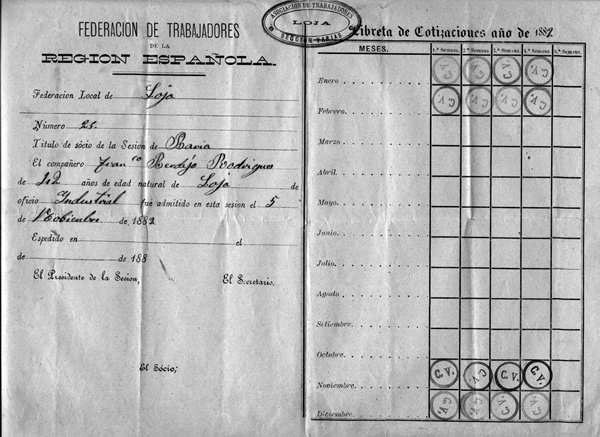 FEDERACION DE TRABAJADORES
DE LA
REGION ESPAÑOLA.
Federacion Local de Loja
Número 25.
Titulo de sócio de la Sesion de Varia
El compañero Franco Rodrigues
de 22 años de edad natural de Loja de
oficio Industrial fue admitido en esta sesion el 5
de de 1882
Espedido en el
de de 188
El Presidente de la Sesion,
El Secretario.
El Sócio;
ASOCIACION DE TRABAJADORES
LOJA
SECCION VARIAS
Libreta de Cotizaciones año de 1882
MESES.
1.ª Semana.
2.ª Semana.
3.ª Semana.
4.ª Semana.
5.ª Semana.
Enero
C.V. C.V. C.V. C.V.
Febrero.
C.V. C.V. C.V. C.V.
Marzo.
Abril.
Mayo.
Junio.
Julio.
Agosto
Setiembre.
Octubre.
Noviembre.
C.V. C.V. C.V. C.V.
Diciembre.
C.V. C.V. C.V. C.V.